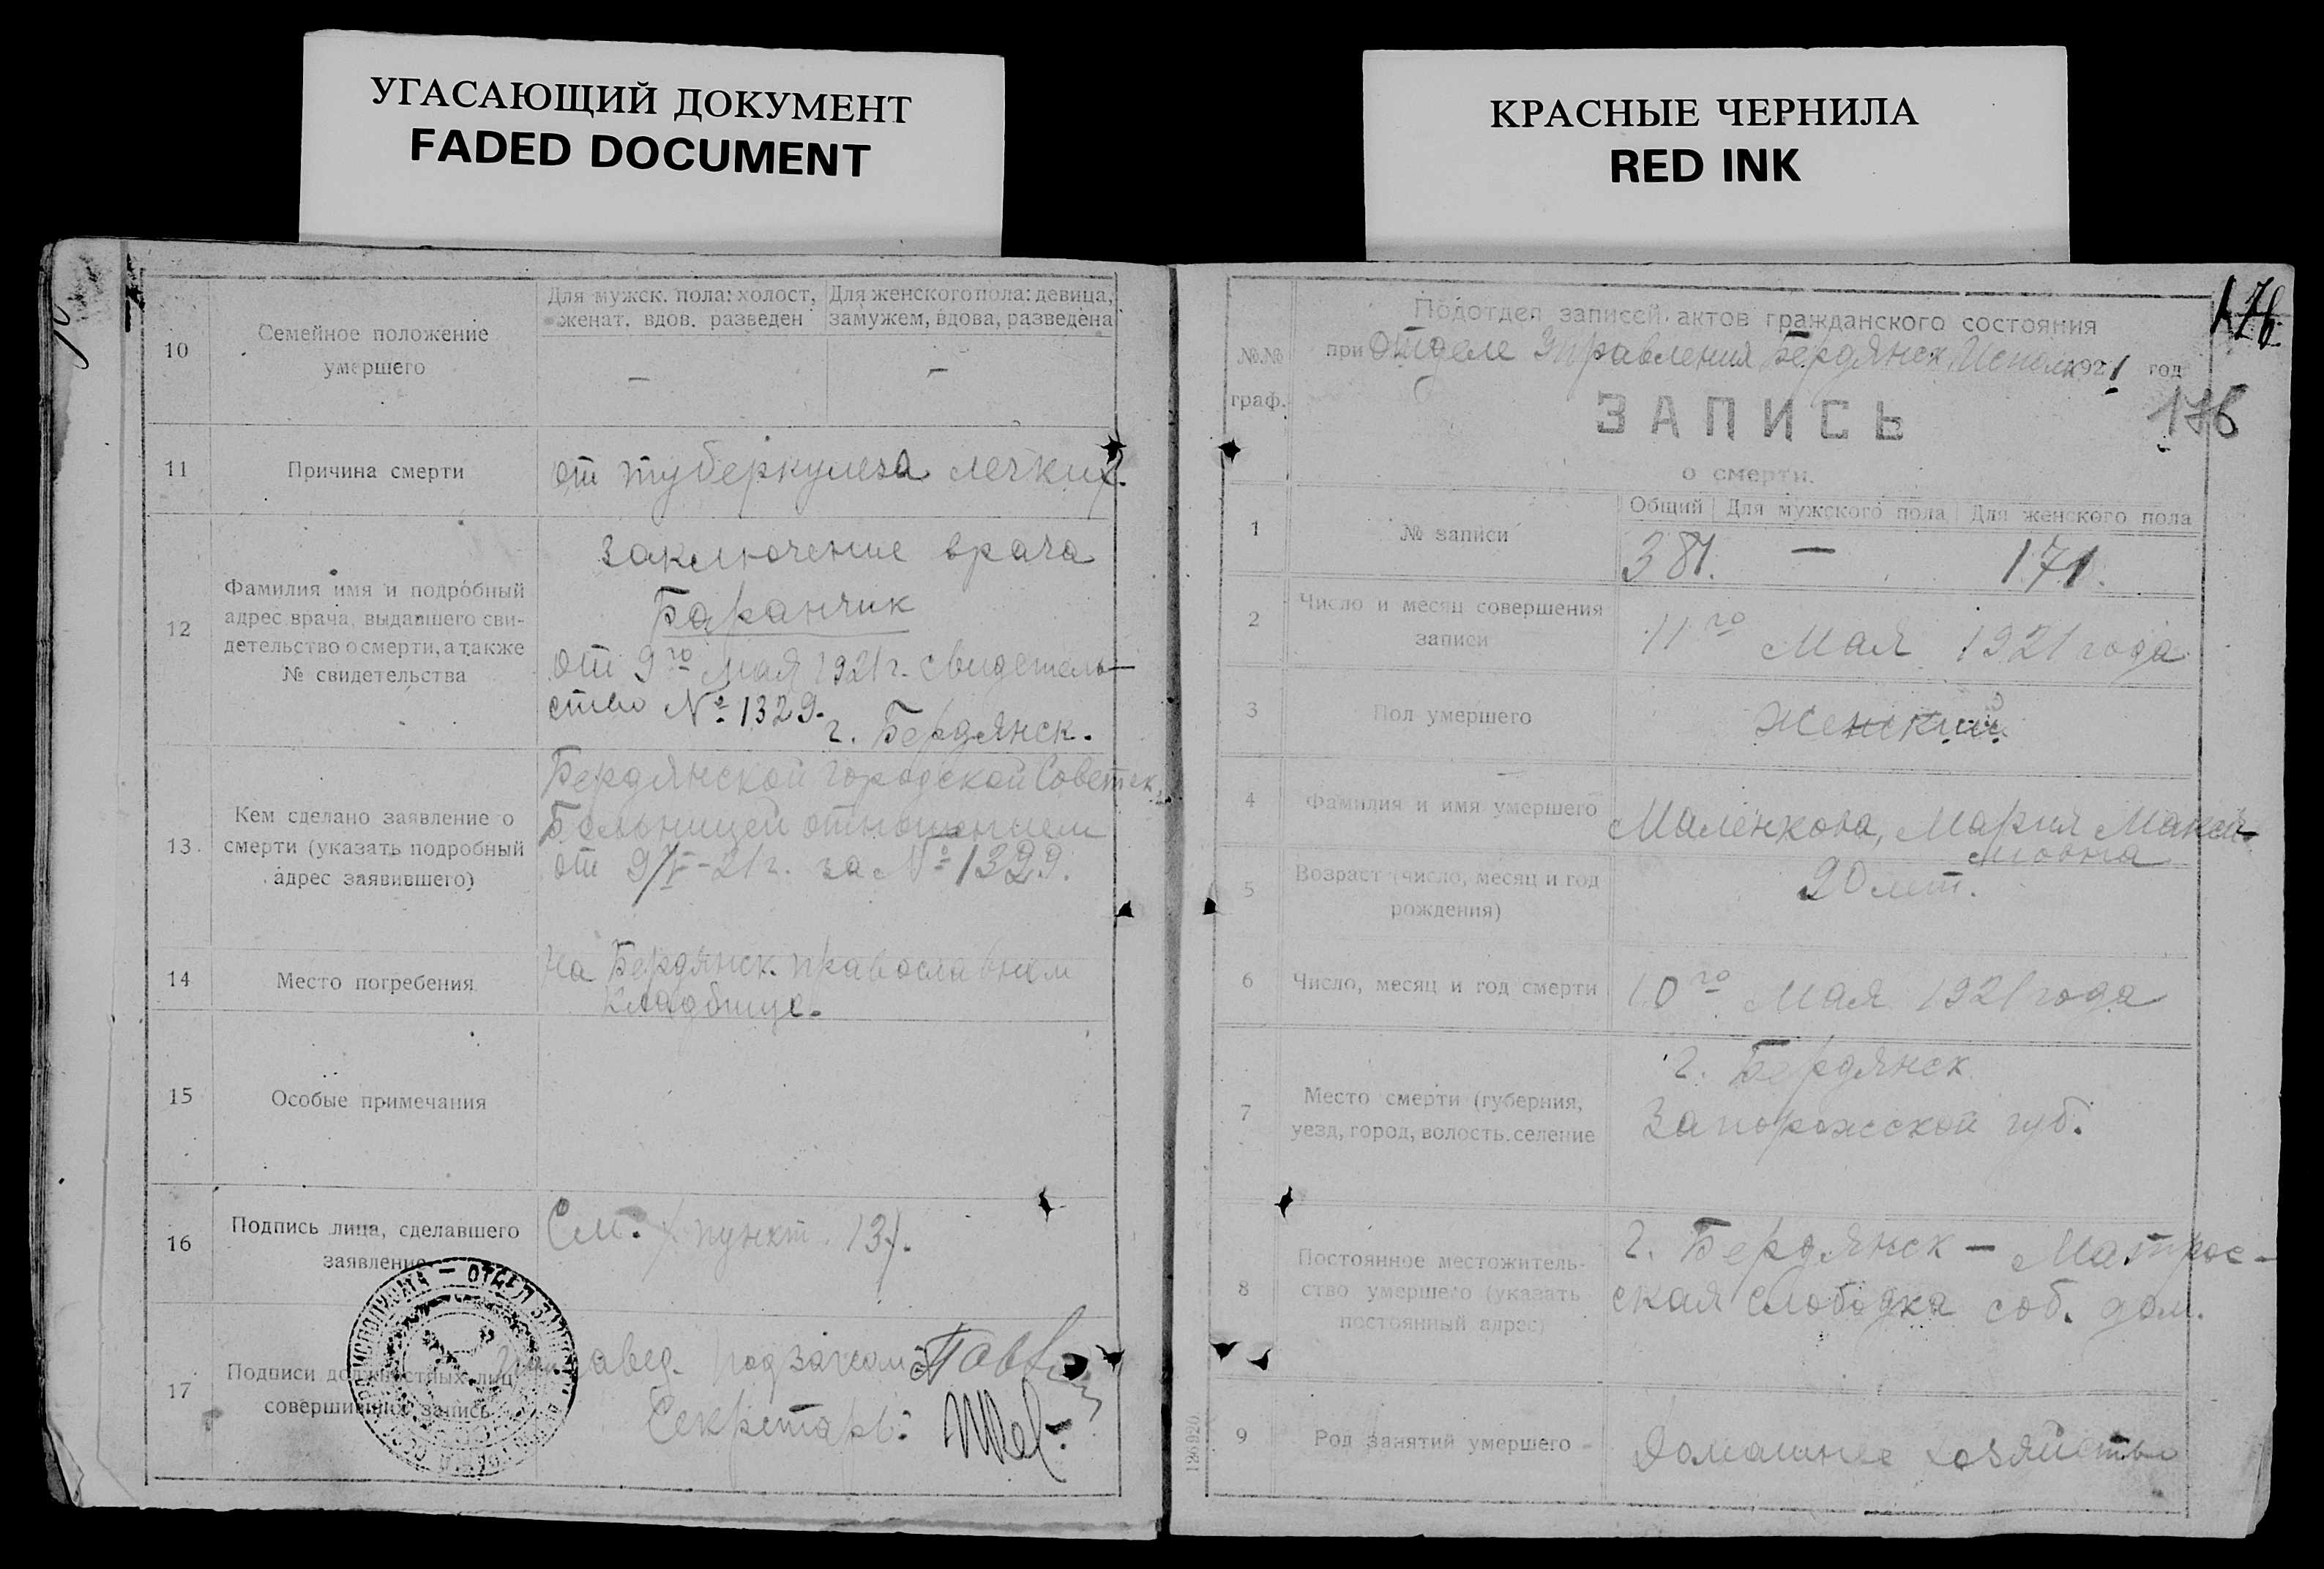 УГАСАЮЩИЙ ДОКУМЕНТ
FADED DOCUMENT
КРАСНЫЕ ЧЕРНИЛА
RED INK
10
Семейное положение
умершего
Для мужск. пола: холост,
женат. вдов. разведен
Для женского пола: девица,
замужем, вдова, разведена
—
—
11
Причина смерти
от туберкулеза легких.
12
Фамилия имя и подробный
адрес врача, выдавшего сви-
детельство о смерти, а также
№ свидетельства
Заключение врача
Баранчик
от 9го мая 1921 г. свидетель-
ство № 1329.
г. Бердянск.
13.
Кем сделано заявление о
смерти (указать подробный
адрес заявившего)
Бердянской городской Советск.
Больницей отношением
от 9/V-21 г. за № 1329.
14
Место погребения
На Бердянск. православном
кладбище.
15
Особые примечания
16
Подпись лица, сделавшего
заявление
См. пункт 13.
17
Подписи должностных лиц
совершивших запись
Завед. подзагсом
Секретарь:
№№
граф.
Подотдел записей актов гражданского состояния
при Отделе Управления Бердянск. Исполк 1921 год
176
ЗАПИСЬ
176
о смерти.
1
№ записи
Общий
Для мужского пола
Для женского пола
381.
—
171.
2
Число и месяц совершения
записи
11го Мая 1921 года
3
Пол умершего
Женский.
4
Фамилия и имя умершего
Маленкова, Мария Макси-
мовна
5
Возраст (число, месяц и год
рождения)
20 лет.
6
Число, месяц и год смерти
10го Мая 1921 года
7
Место смерти (губерния,
уезд, город, волость. селение
г. Бердянск
Запорожской губ.
8
Постоянное местожитель-
ство умершего (указать
постоянный адрес)
г. Бердянск — Матрос-
ская слободка соб. дом.
9
Род занятий умершего
Домашнее хозяйство